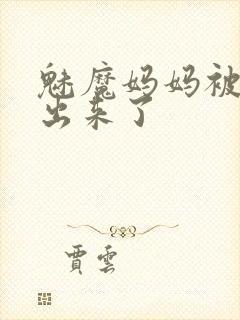 魅魔妈妈被
出来了
贾雲